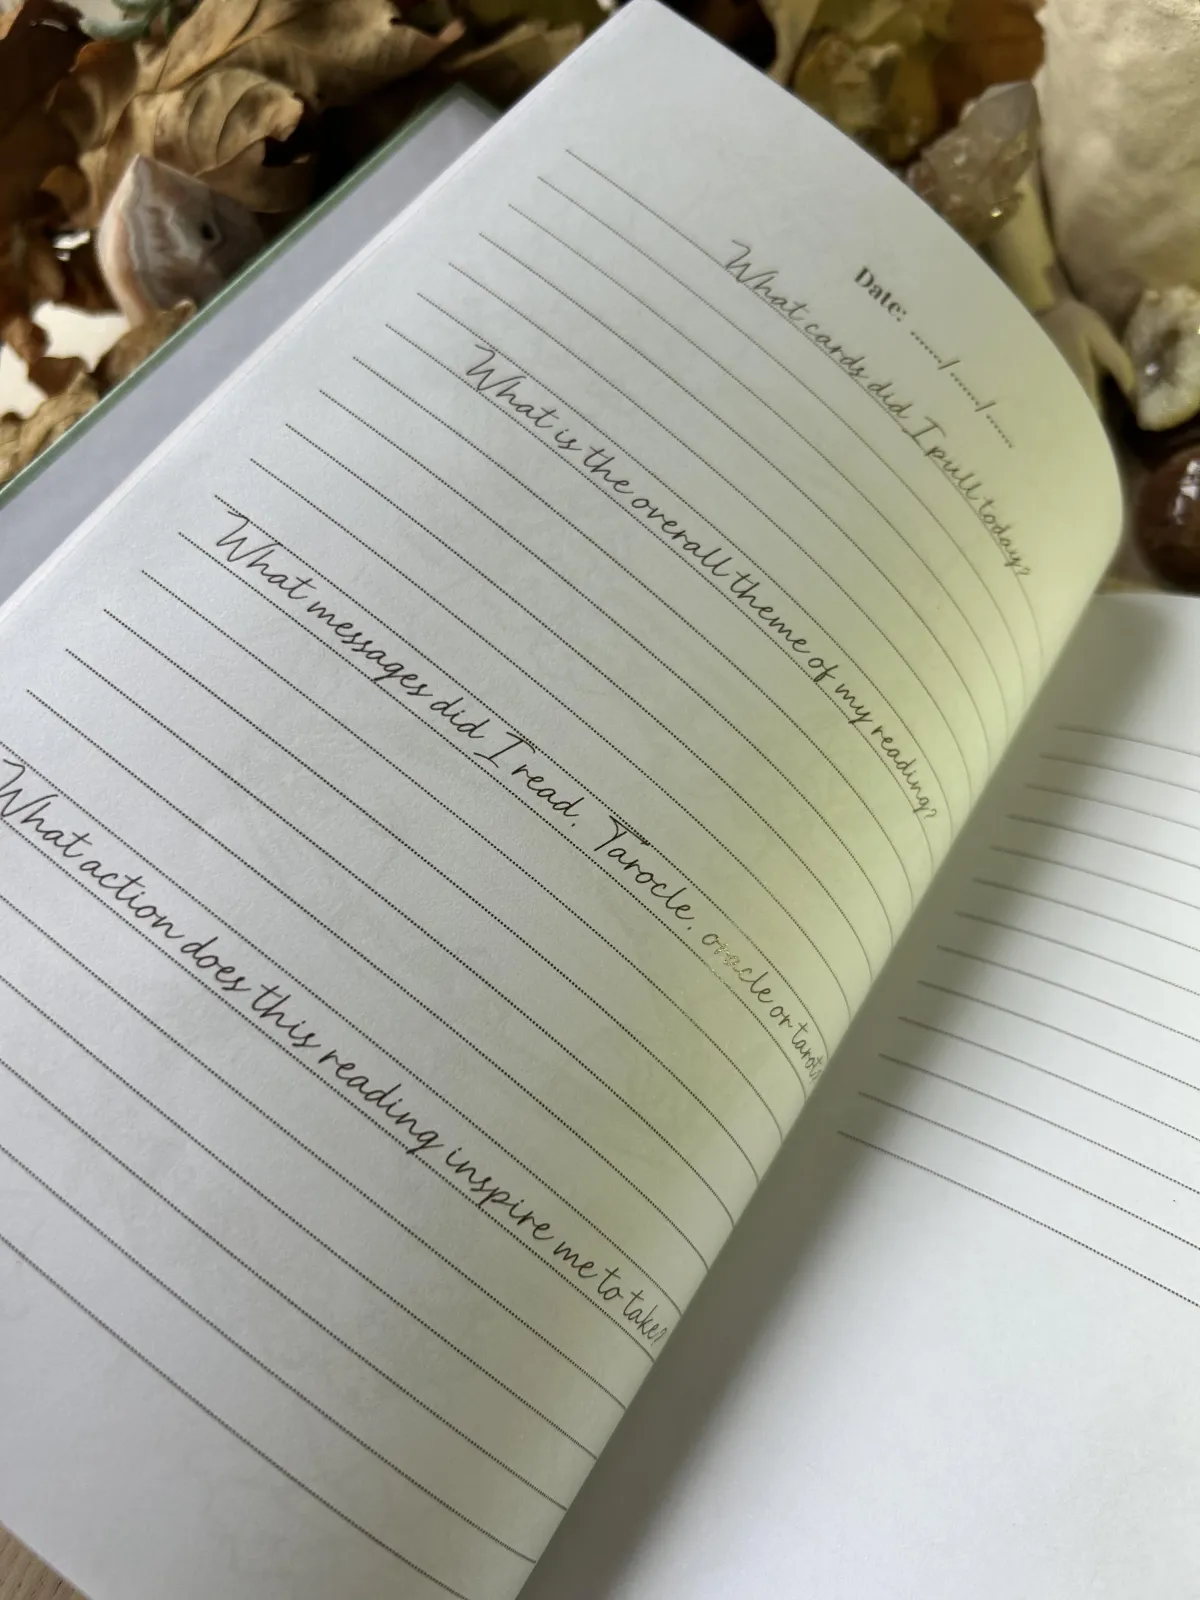 Date: ....../....../......
What cards did I pull today?
What is the overall theme of my reading?
What messages did I read. Tarocle, oracle or tarot?
What action does this reading inspire me to take?